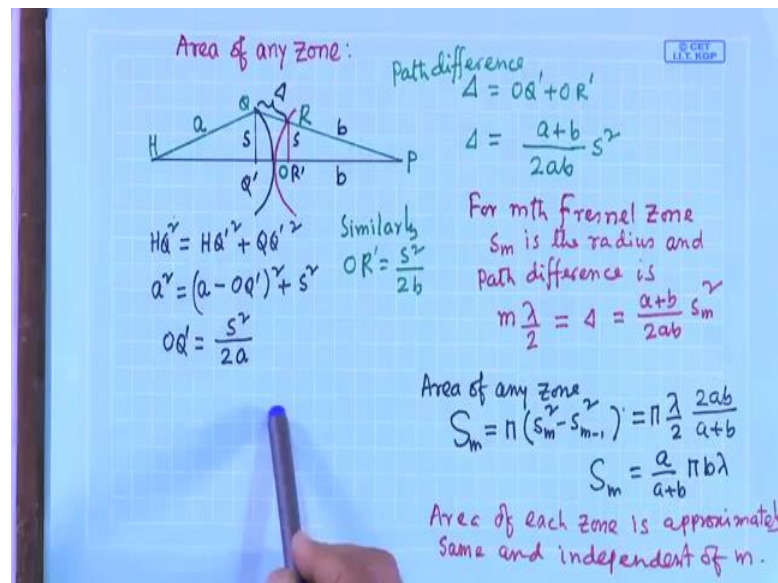 Area of any zone:
© CET
I.I.T. KGP
Path difference
Δ = OQ' + OR'
Δ = (a+b)/(2ab) s²
Q Δ R
a b
H S S P
Q' O R' b
HQ² = HQ'² + QQ'²
a² = (a - OQ')² + s²
OQ' = s²/2a
Similarly
OR' = s²/2b
For mth Fresnel Zone
Sm is the radius and
Path difference is
m λ/2 = Δ = (a+b)/(2ab) Sm²
Area of any Zone
Sm = π(Sm² - Sm-1²) = π λ/2 2ab/(a+b)
Sm = a/(a+b) πbλ
Area of each Zone is approximately
Same and independent of m.